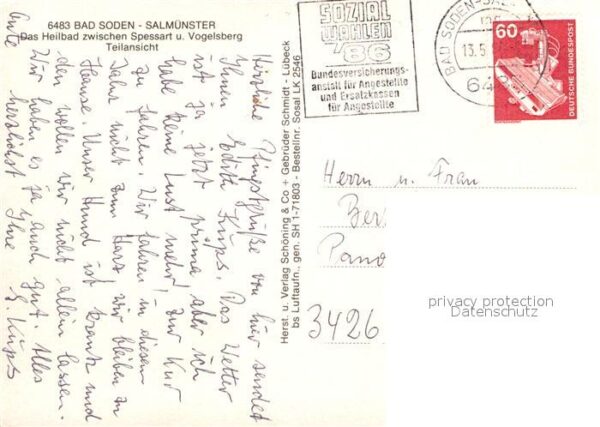 6483 BAD SODEN - SALMÜNSTER
Das Heilbad zwischen Spessart u. Vogelsberg
Teilansicht
Herzliche Pfingstgrüße von hier sendet
Ihnen Edith Küps. Das Wetter
ist ja jetzt prima aber ich
habe keine Lust mehr! zur Kur
zu fahren. Wir fahren in diesem
Jahr nicht zum Harz, wir bleiben zu
Hause. Unser Hund ist krank und
den wollen wir nicht allein lassen.
Wir haben es ja auch gut. Alles
Gute herzlichst Ihre E. Küps
Herst. u. Verlag Schöning & Co + Gebrüder Schmidt - Lübeck
bs Luftaufn., gen. SH 1-71803 - Bestellnr. Sosal LK 2546
SOZIAL
WAHLEN
'86
Bundesversicherungs-
anstalt für Angestellte
und Ersatzkassen
für Angestellte
BAD SODEN-SAL
13.5
648
60
DEUTSCHE BUNDESPOST
Herrn u. Frau
Ber
Pano
3426
privacy protection
Datenschutz